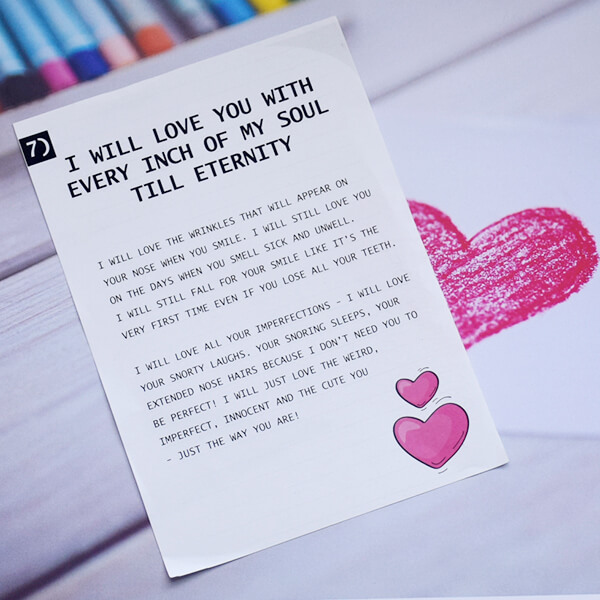 7)
I WILL LOVE YOU WITH
EVERY INCH OF MY SOUL
TILL ETERNITY
I WILL LOVE THE WRINKLES THAT WILL APPEAR ON
YOUR NOSE WHEN YOU SMILE. I WILL STILL LOVE YOU
ON THE DAYS WHEN YOU SMELL SICK AND UNWELL.
I WILL STILL FALL FOR YOUR SMILE LIKE IT'S THE
VERY FIRST TIME EVEN IF YOU LOSE ALL YOUR TEETH.
I WILL LOVE ALL YOUR IMPERFECTIONS - I WILL LOVE
YOUR SNORTY LAUGHS. YOUR SNORING SLEEPS, YOUR
EXTENDED NOSE HAIRS BECAUSE I DON'T NEED YOU TO
BE PERFECT! I WILL JUST LOVE THE WEIRD,
IMPERFECT, INNOCENT AND THE CUTE YOU
- JUST THE WAY YOU ARE!